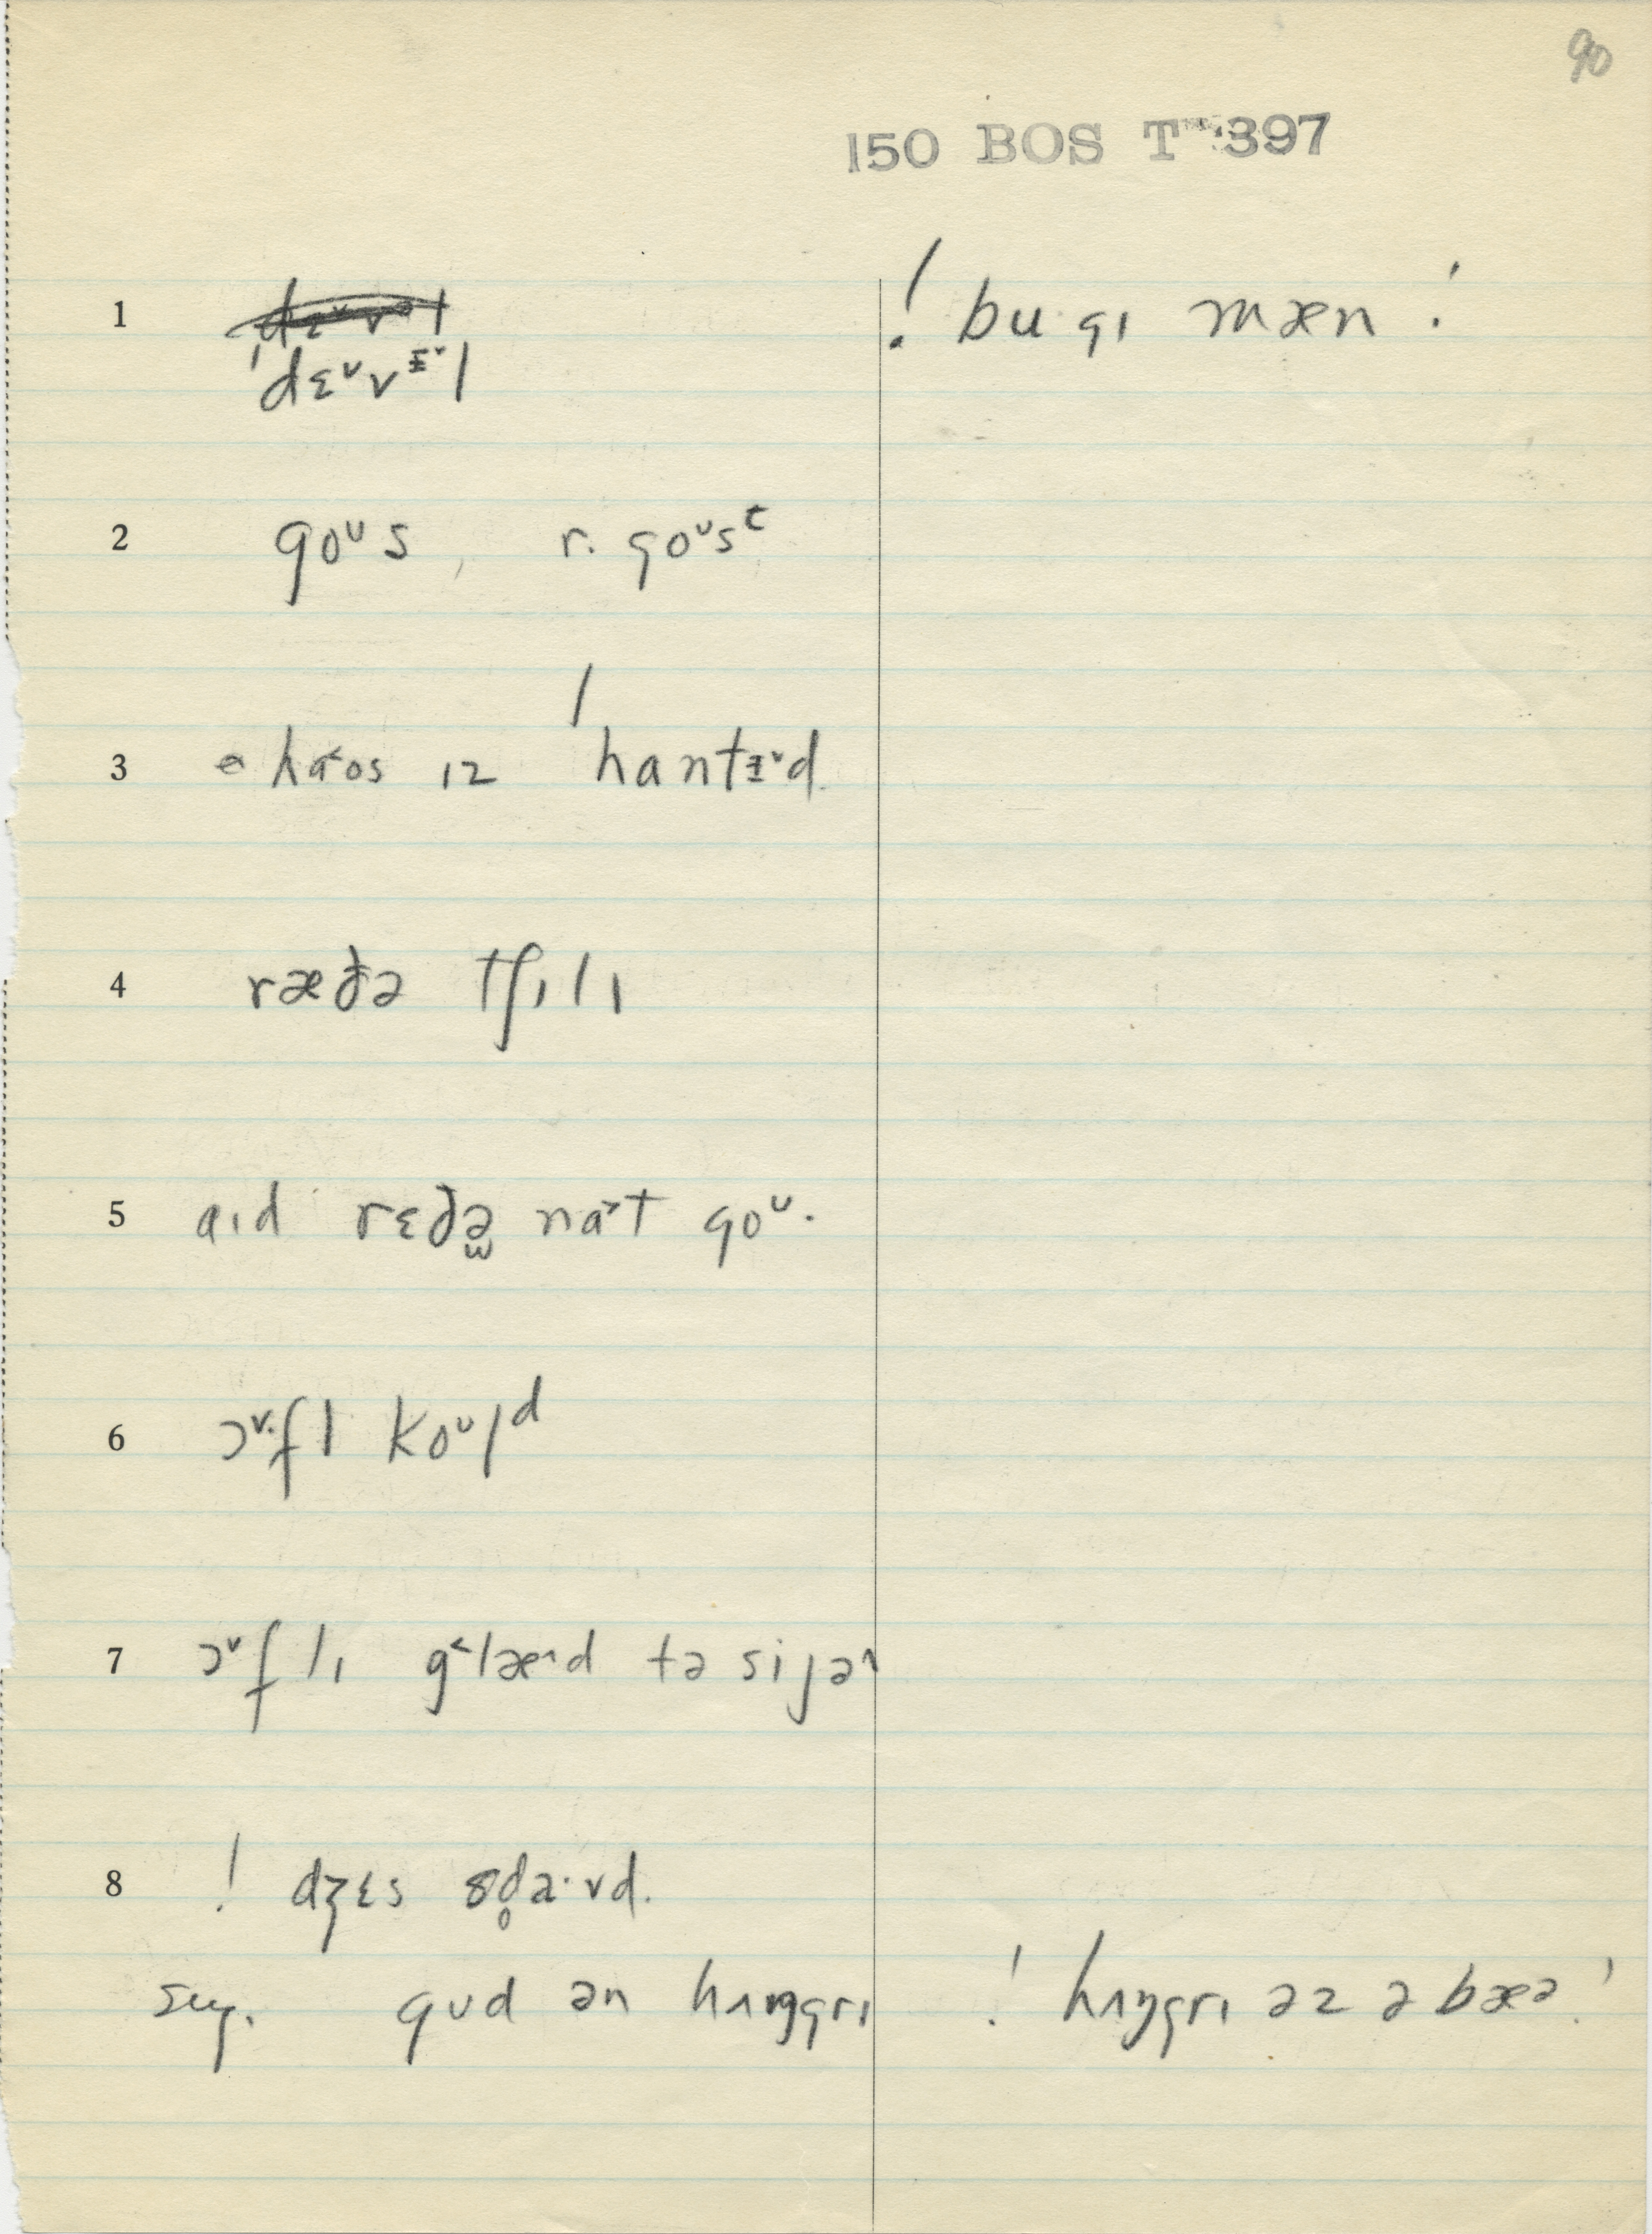 90
150 BOS T 397
1 ˈdɛᵛvᵻᵛl ! bugɪ mæn !
2 goᵘs, r. goᵘsᵗ
3 ə ha˂os ɪz ˈhantᵻᵛd.
4 ræðə tʃɪlɪ
5 aɪd rɛðə̫ na˃t goᵘ.
6 ɔᵛ·fl koᵘlᵈ
7 ɔᵛflɪ g˂læ^d tə sijə^
8 ! dʒɛs sd̥a·vd.
sug. gud ən hʌŋgrɪ ! hʌŋgrɪ əz ə bæə !